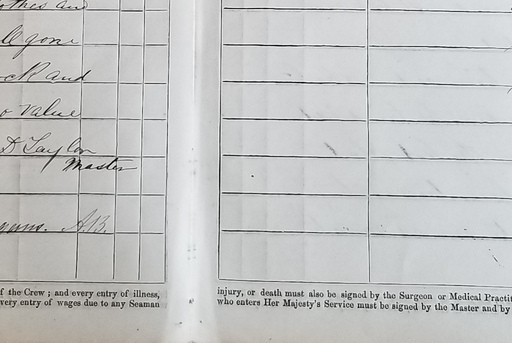 othes and
ll gone
ock and
o value
D Taylor
Master
A.B.
f the Crew ; and every entry of illness,
very entry of wages due to any Seaman
injury, or death must also be signed by the Surgeon or Medical Practit
who enters Her Majesty's Service must be signed by the Master and by